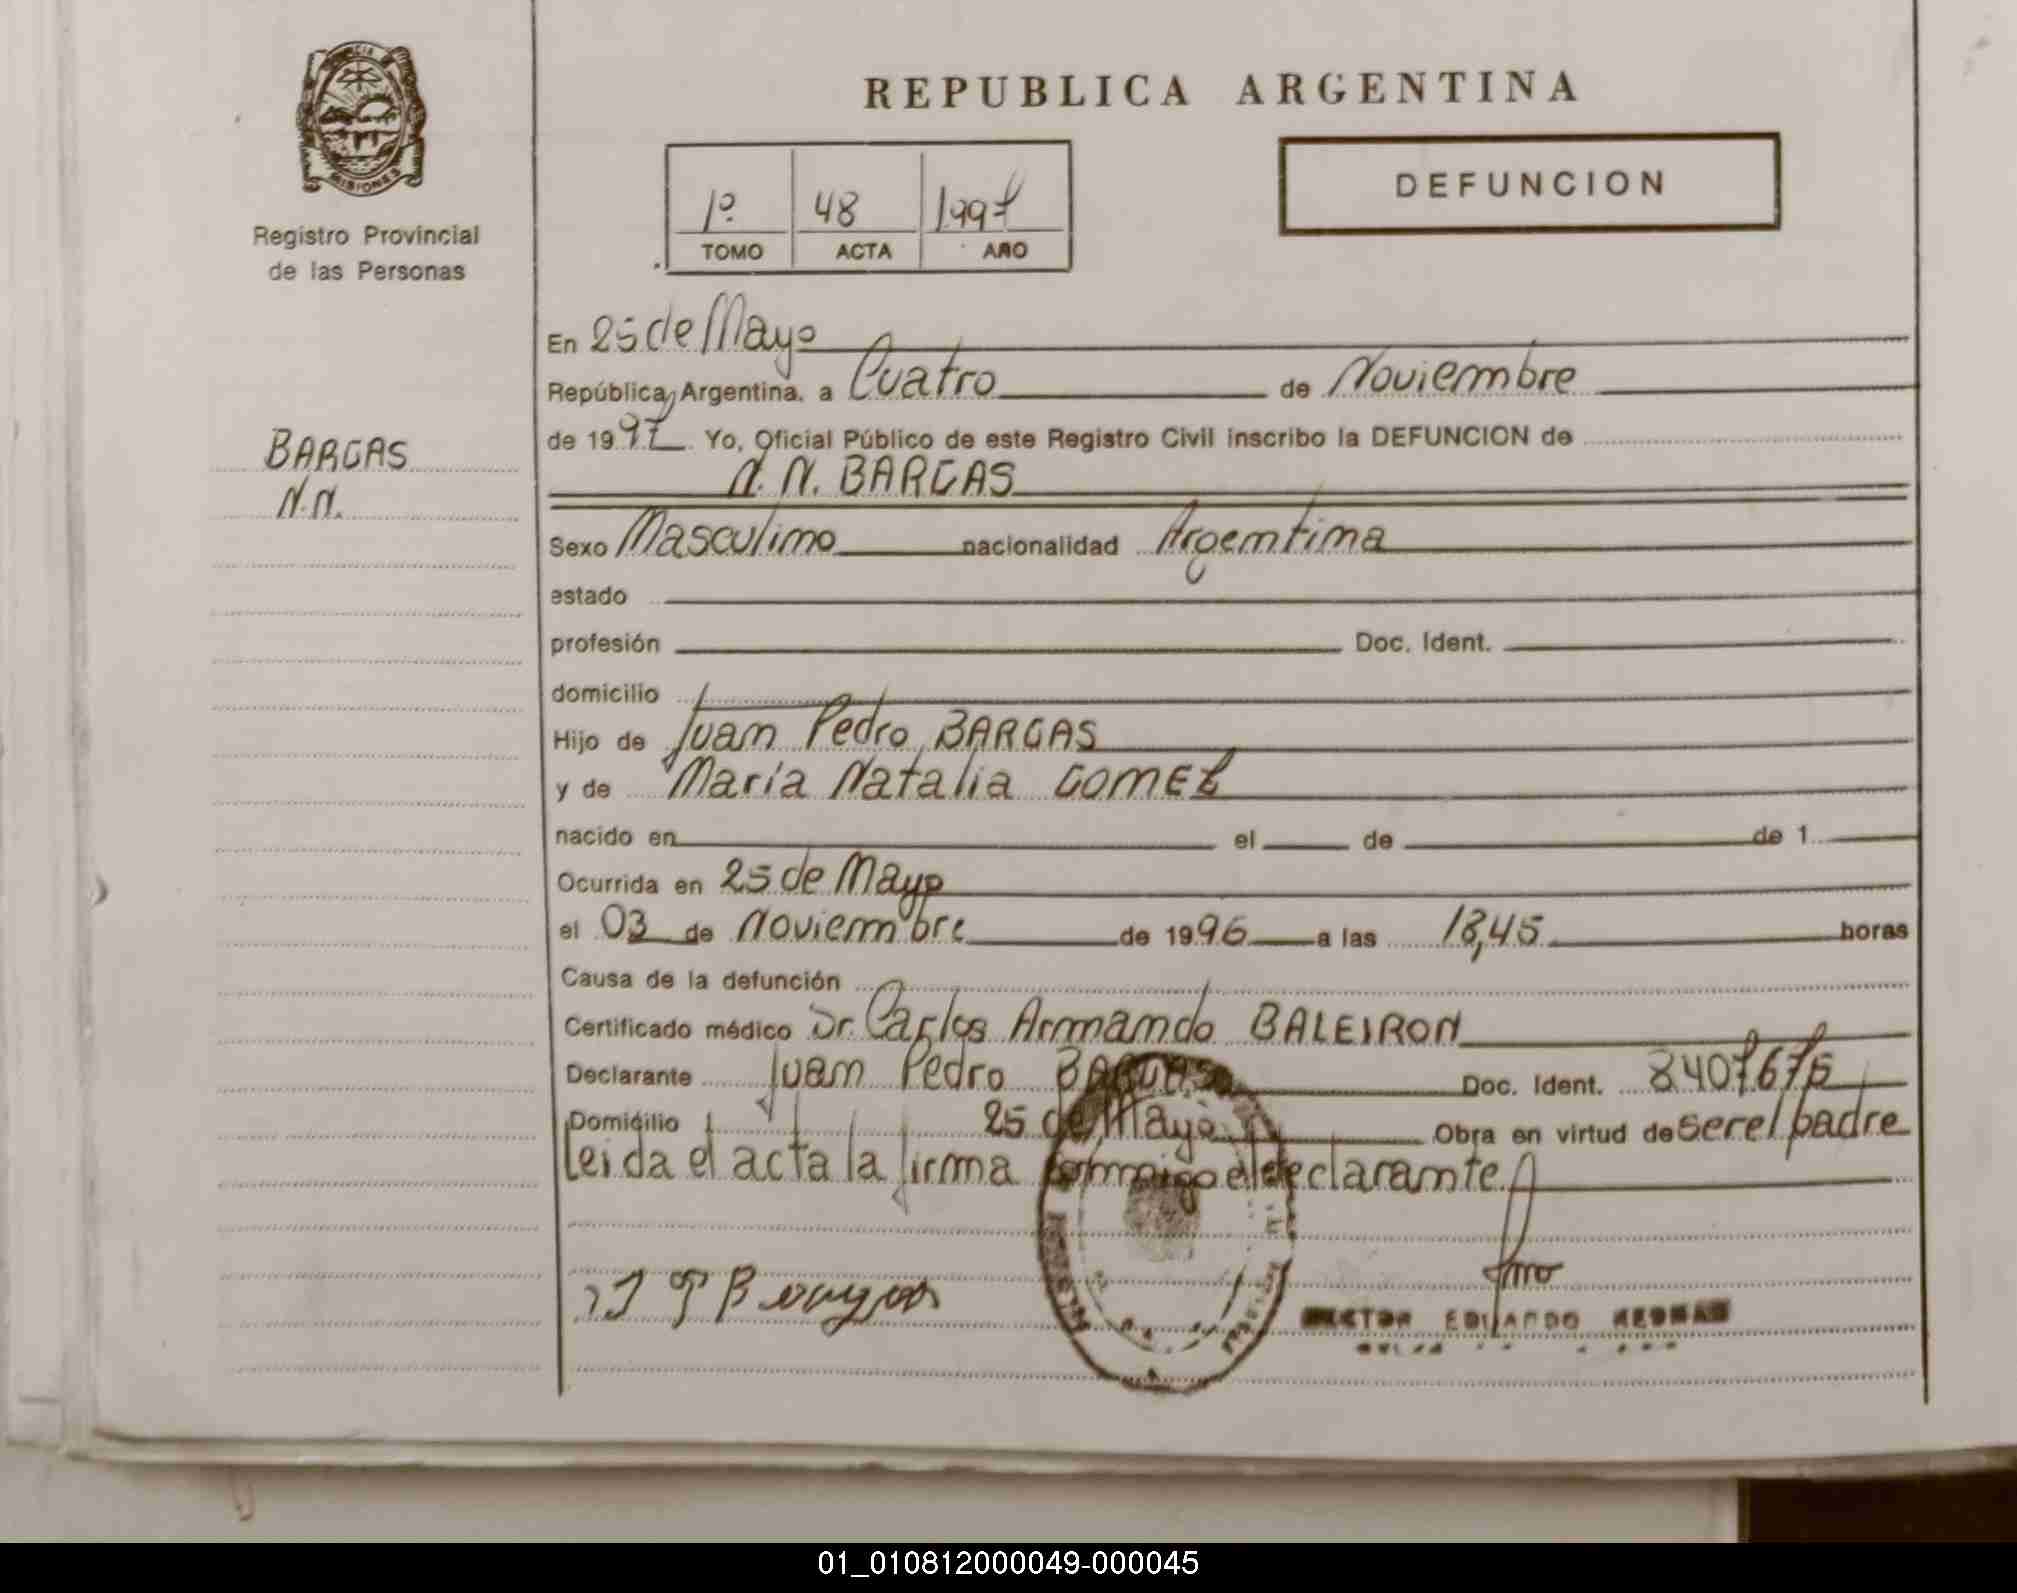 REPUBLICA ARGENTINA
MISIONES
Registro Provincial
de las Personas
1º 48 1997
TOMO ACTA AÑO
DEFUNCION
BARGAS
N.N.
En 25 de Mayo
República Argentina, a Cuatro de Noviembre
de 1997 Yo, Oficial Público de este Registro Civil inscribo la DEFUNCION de
N. N. BARGAS
Sexo Masculino nacionalidad Argentina
estado
profesión Doc. Ident.
domicilio
Hijo de Juan Pedro BARGAS
y de María Natalia GOMEZ
nacido en el de de 1
Ocurrida en 25 de Mayo
el 03 de Noviembre de 1996 a las 18,45 horas
Causa de la defunción
Certificado médico Dr. Carlos Armando BALEIRON
Declarante Juan Pedro BARGAS Doc. Ident. 8407675
Domicilio 25 de Mayo Obra en virtud de ser el padre
Leida el acta la firma conmigo el declarante
HECTOR EDUARDO
01_010812000049-000045